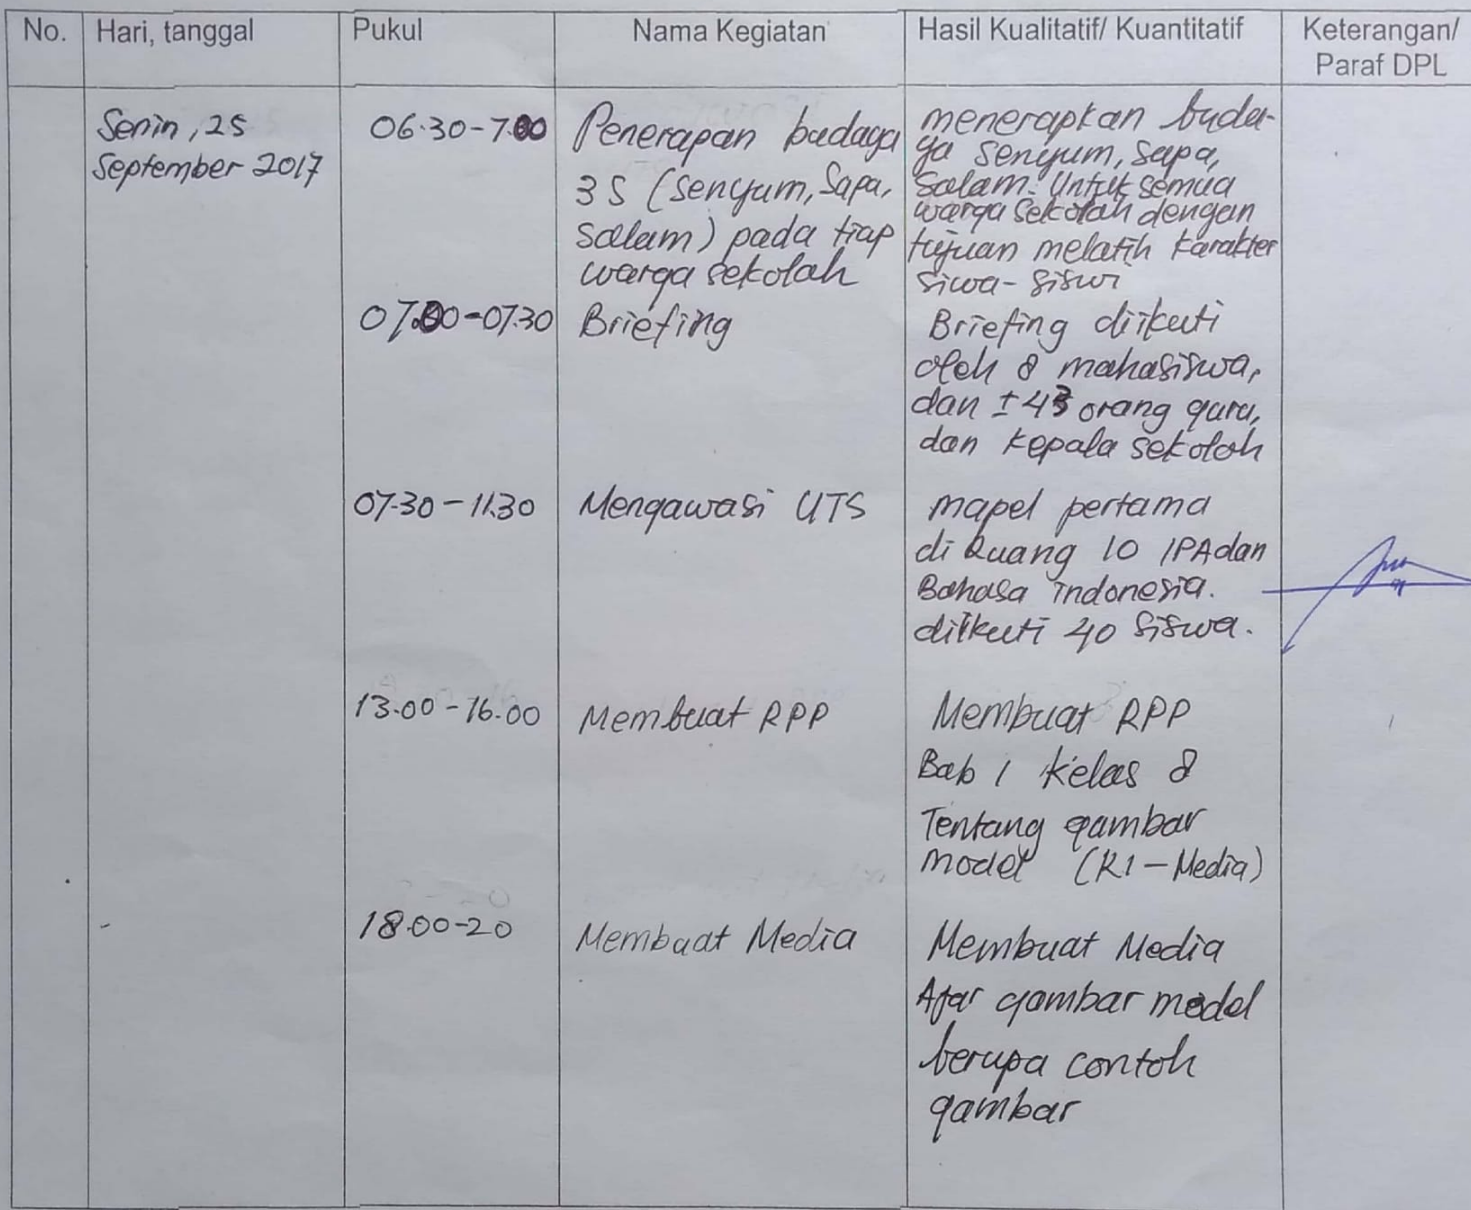 No. Hari, tanggal Pukul Nama Kegiatan Hasil Kualitatif/ Kuantitatif Keterangan/
Paraf DPL
Senin, 25
September 2017
06.30-7.00
Penerapan budaya
3S (senyum, Sapa,
salam) pada tiap
warga sekolah
menerapkan buda-
ya senyum, sapa,
salam. Untuk semua
warga sekolah dengan
tujuan melatih karakter
siwa-siswi
07.00-07.30
Briefing
Briefing diikuti
oleh 8 mahasiswa,
dan ± 43 orang guru,
dan kepala sekolah
07.30-11.30
Mengawasi UTS
mapel pertama
di Ruang 10 IPA dan
Bahasa indonesia.
diikuti 40 siswa.
13.00-16.00
Membuat RPP
Membuat RPP
Bab 1 kelas 8
Tentang gambar
model (R1-Media)
18.00-20
Membuat Media
Membuat Media
Ajar gambar model
berupa contoh
gambar